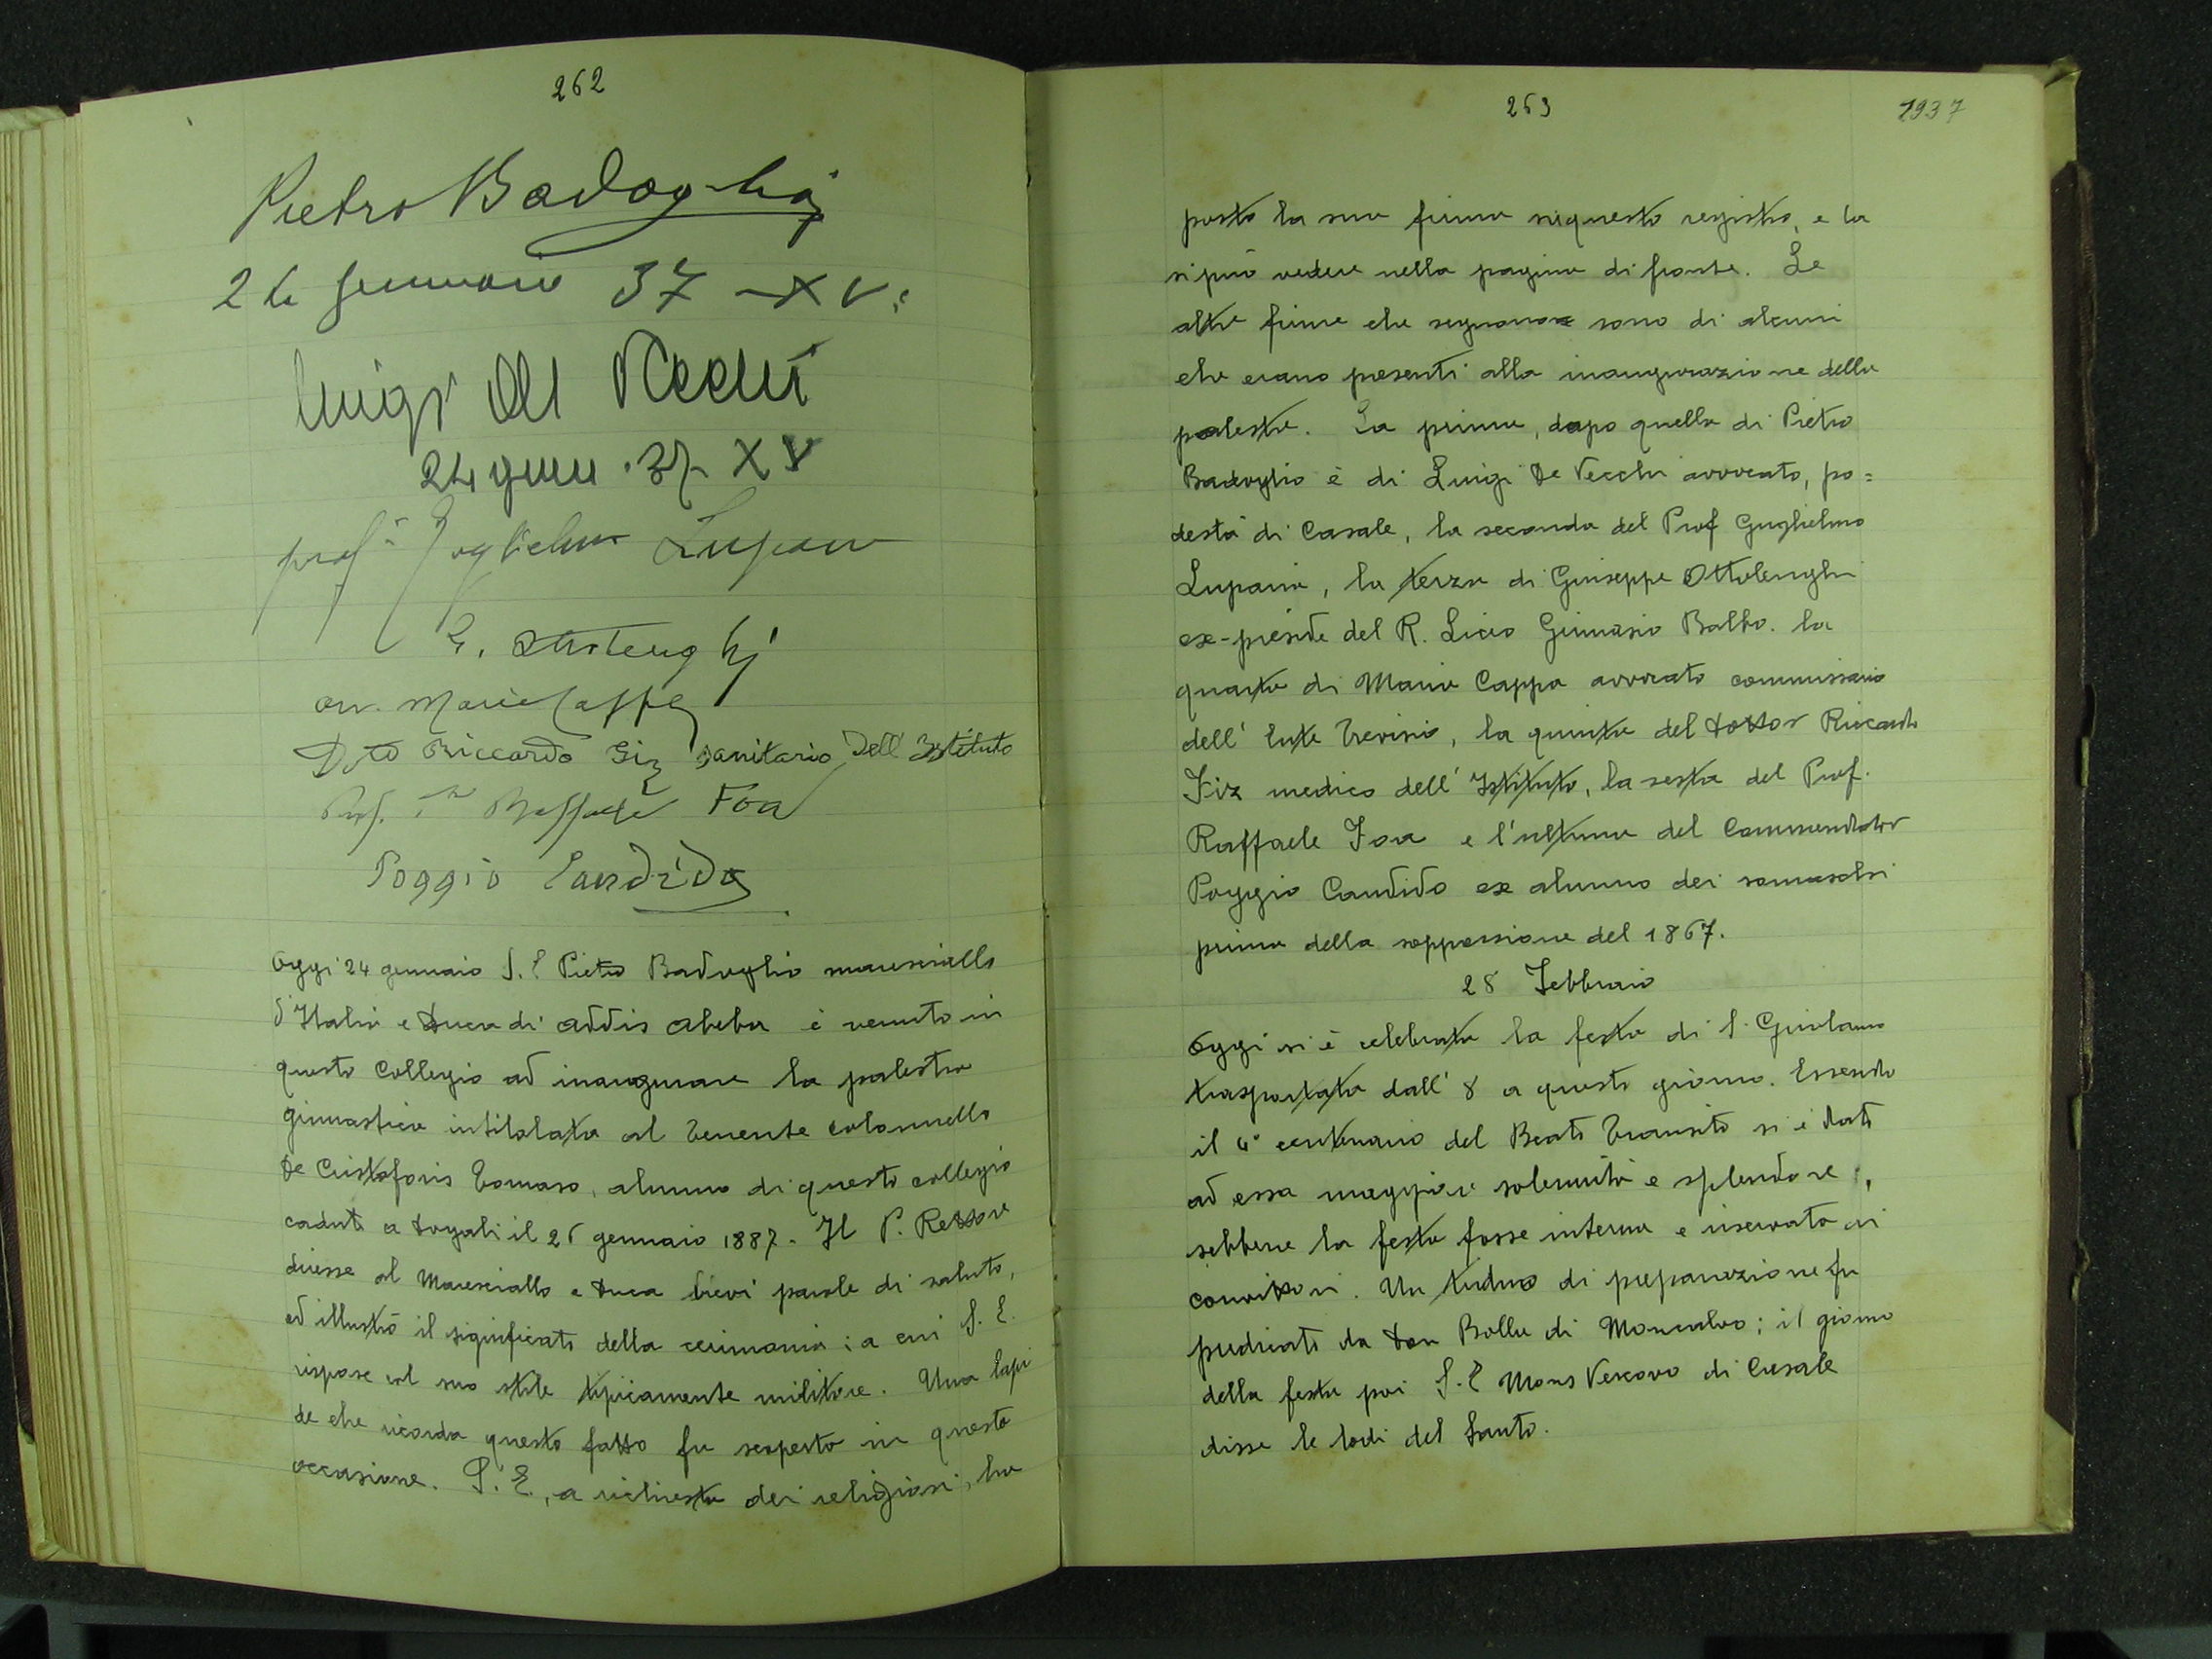 262
Pietro Badoglio
24 gennaio 37 - XV.
Luigi De Vecchi
24 genn. 37 XV
prof. Guglielmo Lupano
G. Ottolenghi
avv. Mario Cappa
Dott Riccardo Fiz sanitario dell'Istituto
Prof. Raffaele Foa
Poggio Candido
Oggi 24 gennaio S. E Pietro Badoglio maresciallo
d'Italia e Duca di Addis Abeba è venuto in
questo Collegio ad inaugurare la palestra
ginnastica intitolata al Tenente colonnello
De Cristoforis Tomaso, alunno di questo collegio
caduto a Dogali il 26 gennaio 1887. Il P. Rettore
diresse al Maresciallo e Duca brevi parole di saluto,
ed illustrò il significato della cerimonia; a cui S. E.
rispose col suo stile tipicamente militare. Una lapi
de che ricorda questo fatto fu scoperta in questa
occasione. S. E., a richiesta dei religiosi, ha
263
1937
posto la sua firma su questo registro, e la
si può vedere nella pagina di fronte. Le
altre firme che seguono sono di alcuni
che erano presenti alla inaugurazione della
palestra. La prima, dopo quella di Pietro
Badoglio è di Luigi De Vecchi avvocato, po=
destà di Casale, la seconda del Prof Guglielmo
Lupano, la terza di Giuseppe Ottolenghi
ex-preside del R. Liceo Ginnasio Balbo. la
quarta di Mario Cappa avvocato commissario
dell' Ente Trevisio, la quinta del dottor Riccardo
Fiz medico dell' Istituto, la sesta del Prof.
Raffaele Foa e l'ultima del Commendator
Poggio Candido ex alunno dei somaschi
prima della soppressione del 1867.
28 Febbraio
Oggi si è celebrata la festa di S. Girolamo
trasportata dall' 8 a questo giorno. Essendo
il 4° centenario del Beato Transito si è dato
ad essa maggiore solennità e splendore,
sebbene la festa fosse interna e riservata ai
convittori. Un triduo di preparazione fu
predicato da Don Bolla di Moncalvo; il giorno
della festa poi S. E Mons Vescovo di Casale
disse le lodi del Santo.